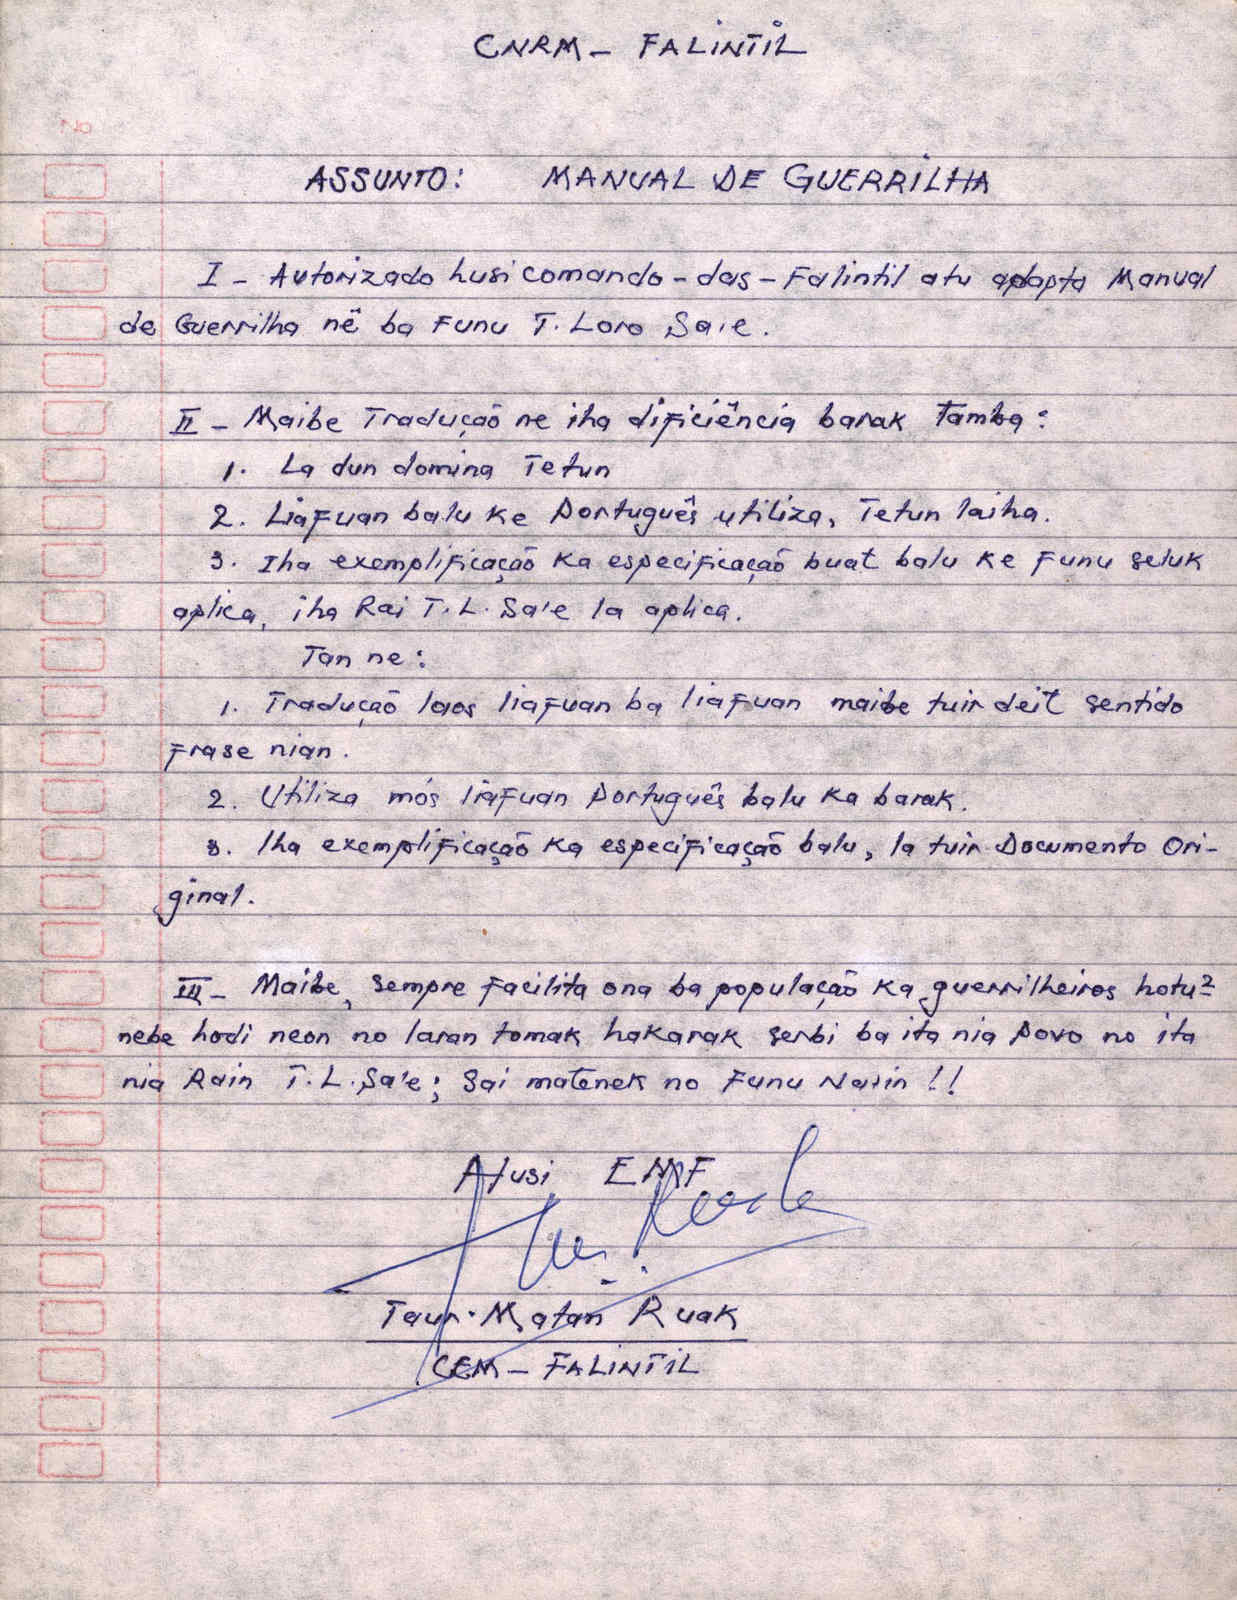 CNRM - FALINTIL
No
ASSUNTO: MANUAL DE GUERRILHA
I - Autorizado husi comando - das - Falintil atu adopta Manual
de Guerrilha nê ba Funu T. Loro Sa'e.
II - Maibe Tradução ne iha dificiência barak Tamba:
1. La dun domina Tetun
2. Liafuan balu ke Português utiliza, Tetun laiha.
3. Iha exemplificação ka especificação buat balu ke Funu seluk
aplica, iha Rai T.L. Sa'e la aplica.
Tan ne:
1. Tradução laos liafuan ba liafuan maibe tuir deit sentido
frase nian.
2. Utiliza mós liafuan Português balu ka barak.
3. Iha exemplificação ka especificação balu, la tuir Documento Ori-
ginal.
III - Maibe, sempre facilita ona ba população ka guerrilheiros hotu2
nebe hodi neon no laran tomak hakarak serbi ba ita nia Povo no ita
nia Rain T.L.Sa'e; Sai matenek no Funu Nain!!
A/usi EMF
Taur. Matan Ruak
CEM - FALINTIL